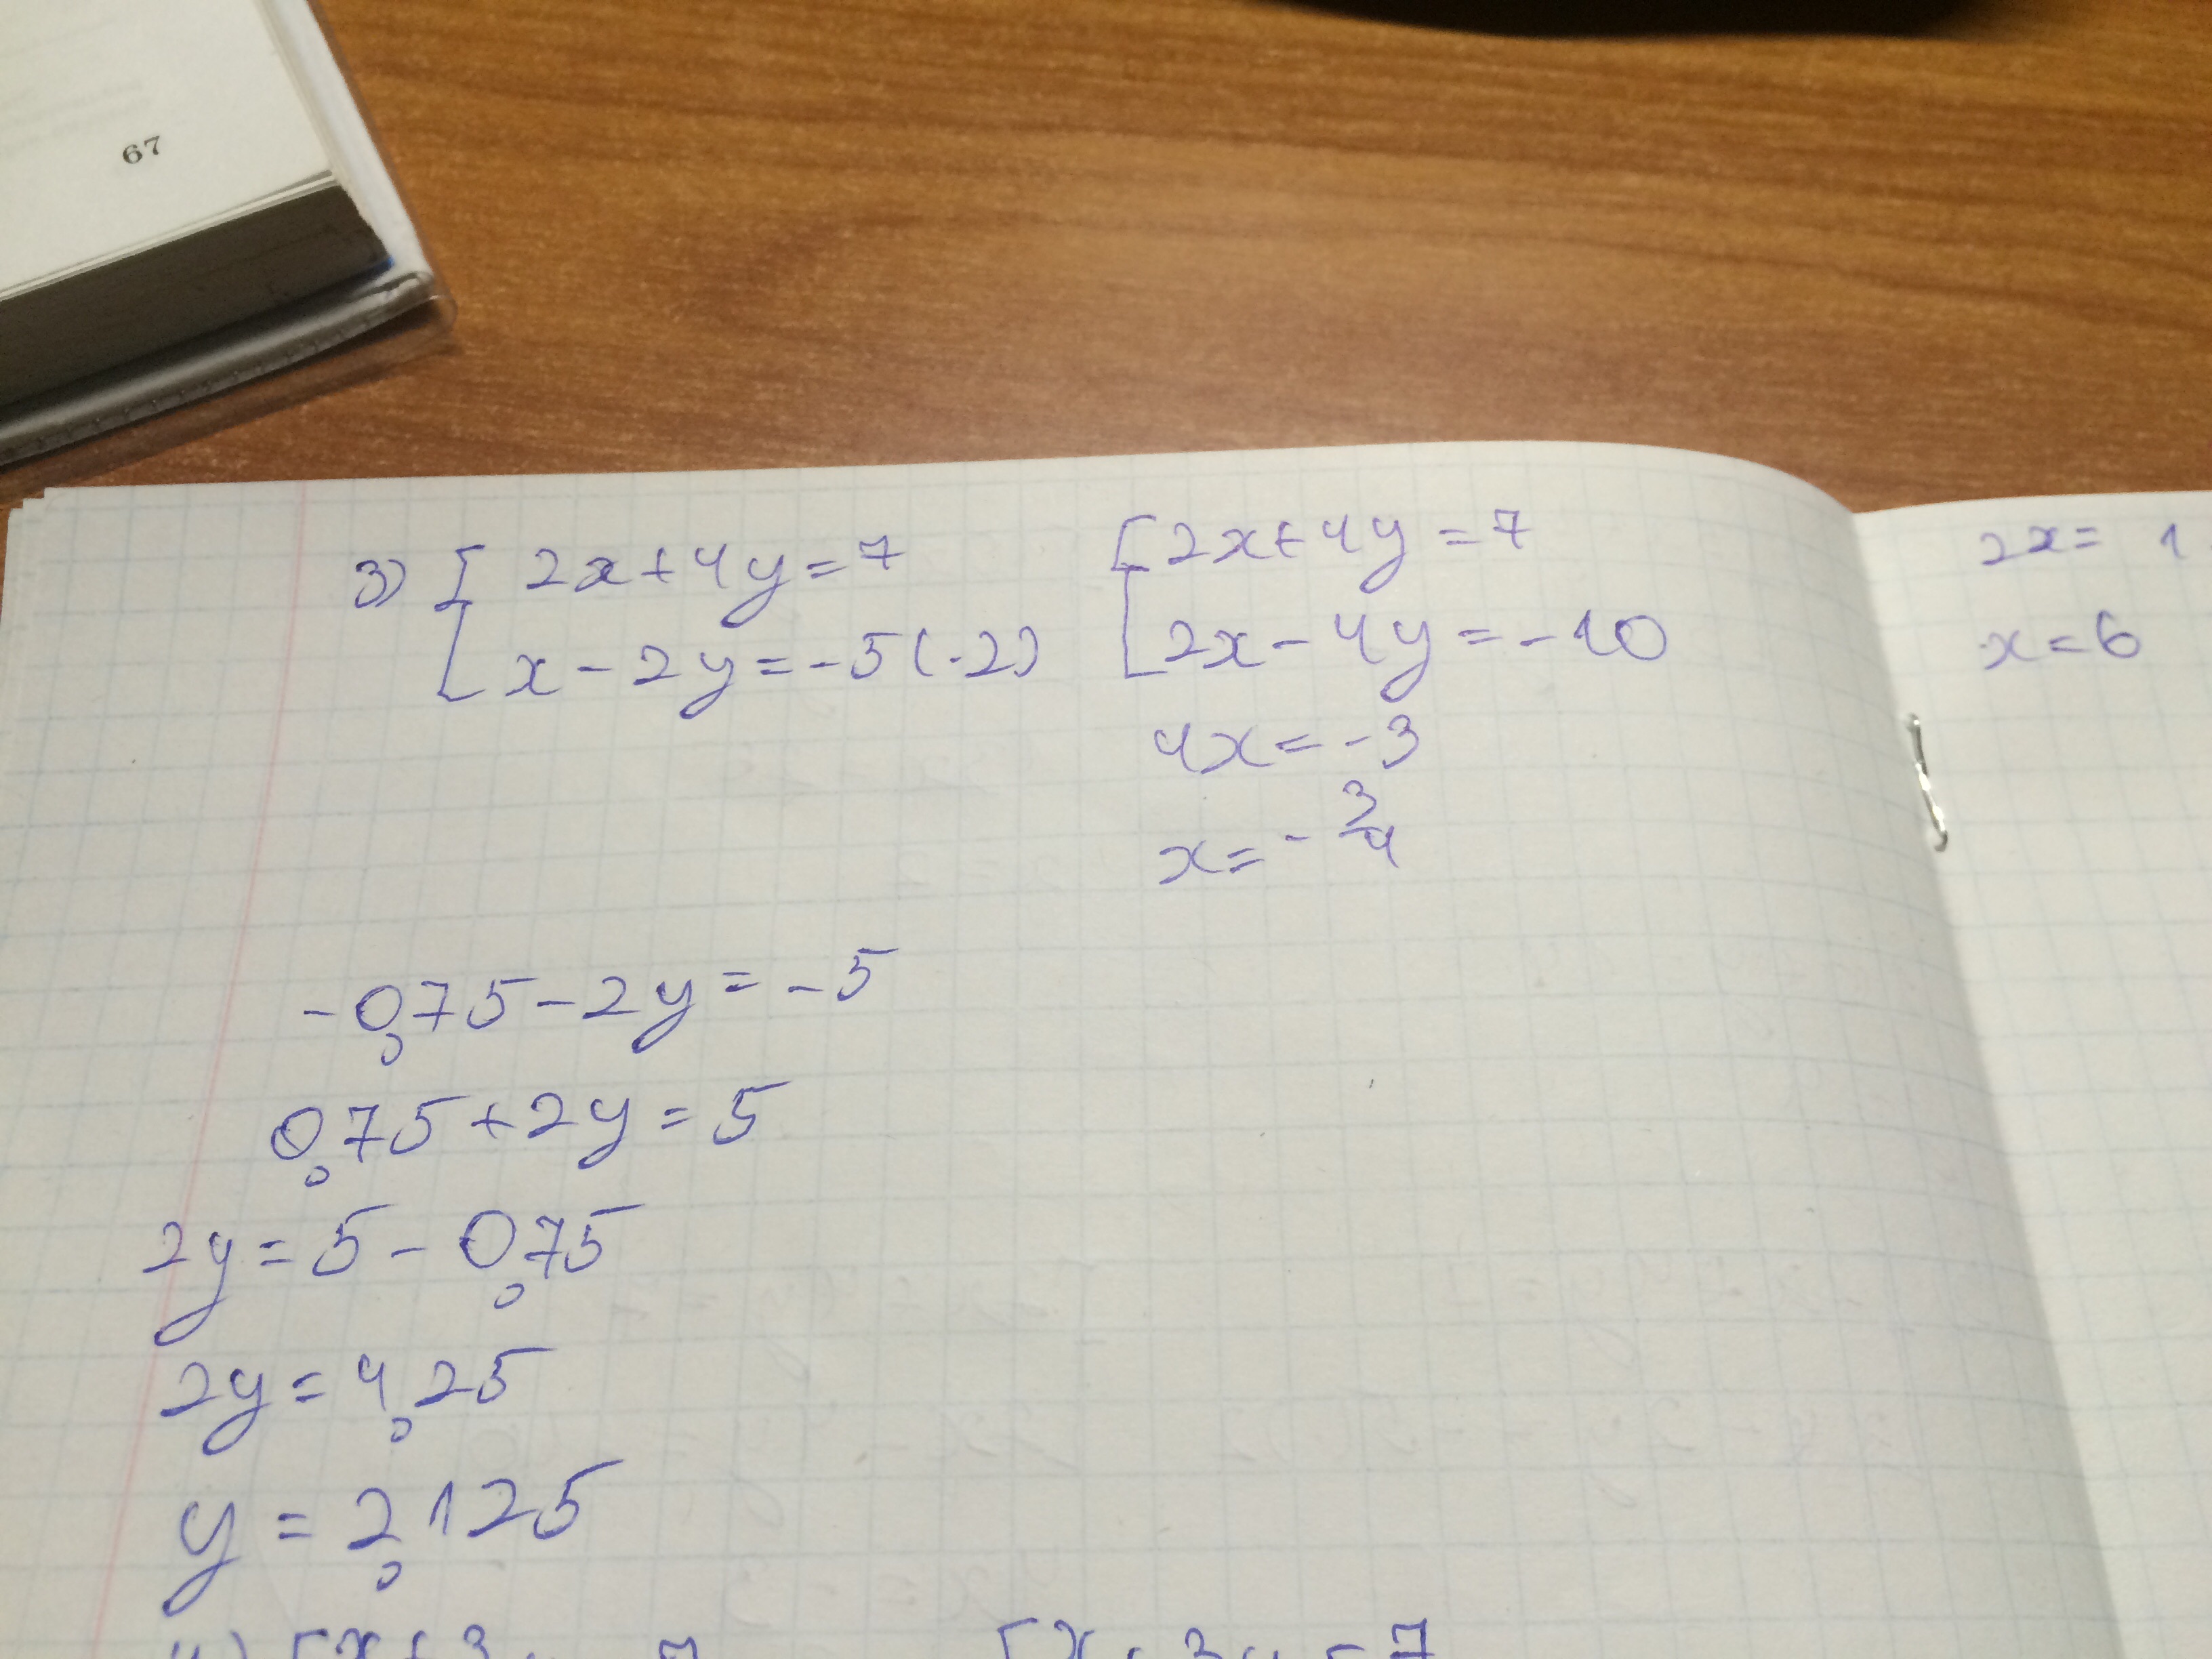 67
3) [ 2x+4y=7
[ x-2y=-5(·2)
[ 2x+4y=7
[ 2x-4y=-10
4x=-3
x=-3/4
-0,75-2y=-5
0,75+2y=5
2y=5-0,75
2y=4,25
y=2,125
2x= 1
x=6